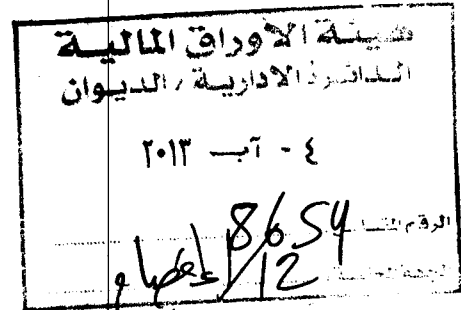 هيئة الاوراق المالية
الدائرة الادارية / الديوان
٤ - آب ٢٠١٣
الرقم المتسلسل 8654
الجهة المختصة 12